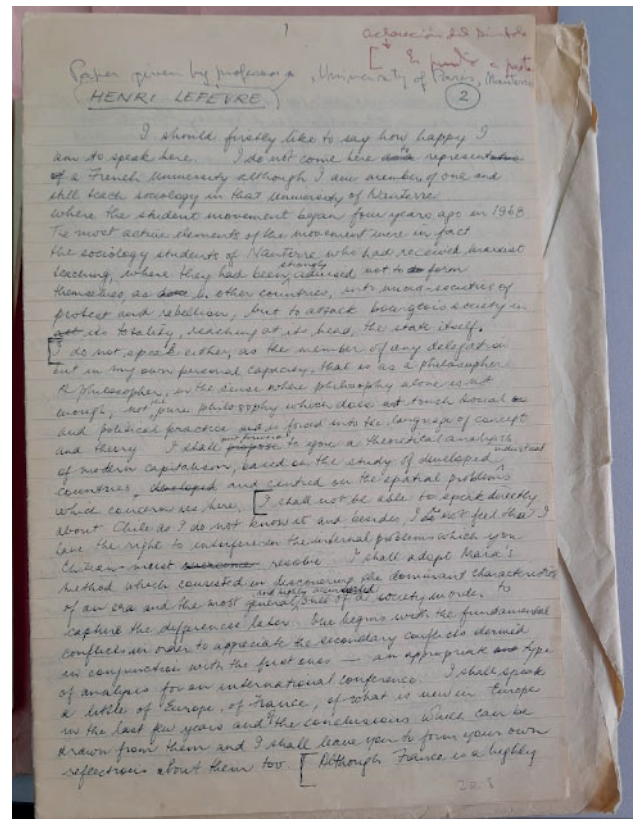 1
aclaración del
Paper given by professor, University of Paris, Nanterre
(HENRI LEFEVRE)
2
I should firstly like to say how happy I
am to speak here. I do not come here represent
of a French University although I am a member of one and
still teach sociology in that University of Nanterre
where the student movement began four years ago in 1968.
The most active elements of the movement were in fact
the sociology students of Nanterre who had received marxist
teaching, where they had been strongly advised not to form
themselves, as in other countries, into micro-societies of
protest and rebellion, but to attack bourgeois society in
its totality, reaching at its head, the state itself.
[I do not speak either, as the member of any delegation
but in my own personal capacity, that is as a philosopher.
A philosopher, in the sense where philosophy alone is not
enough, not the pure philosophy which does not touch social
and political practice and is forced into the language of concept
and theory. I shall put forward to you a theoretical analysis
of modern capitalism, based on the study of developed industrial
countries, and centred on the spatial problems
which concern us here. [I shall not be able to speak directly
about Chile as I do not know it and besides, I do not feel that I
have the right to interfere in the internal problems which you
Chileans must resolve. I shall adopt Marx's
method which consisted in discovering the dominant characteristics
of an era and the most general and highly of a society in order to
capture the differences later. One begins with the fundamental
conflicts in order to appreciate the secondary conflicts derived
in conjunction with the first ones — an appropriate type
of analysis for an international conference. I shall speak
a little of Europe, of France, of what is new in Europe
in the last few years and the conclusions which can be
drawn from them and I shall leave you to form your own
reflections about them too. [Although France is a highly